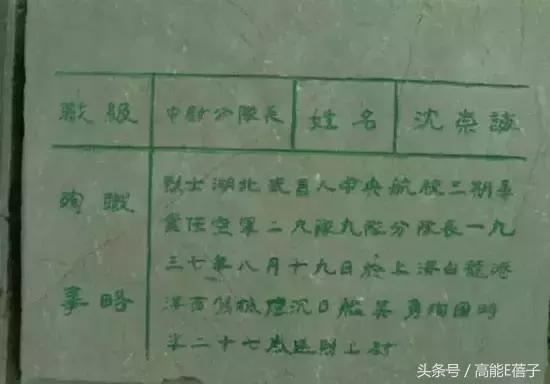 職級 中尉分隊長 姓名 沈崇
殉職
事略
烈士湖北武昌人中央航校三期畢
業任空軍二大隊九隊分隊長一九
三七年八月十九日於上海白龍港
洋面駕機撞沉日艦英勇殉國時
年二十七歲追贈上尉
头条号 / 高能E蓓子